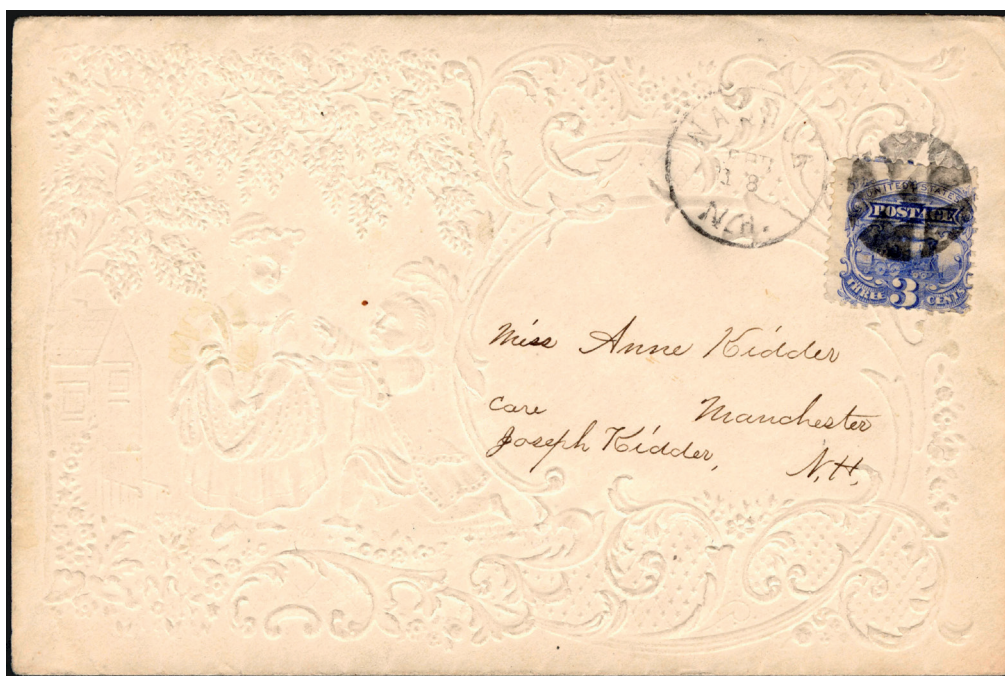 N.H.
UNITED STATES
POSTAGE
THREE 3 CENTS
Miss Anne Kidder
care Manchester
Joseph Kidder, N.H.